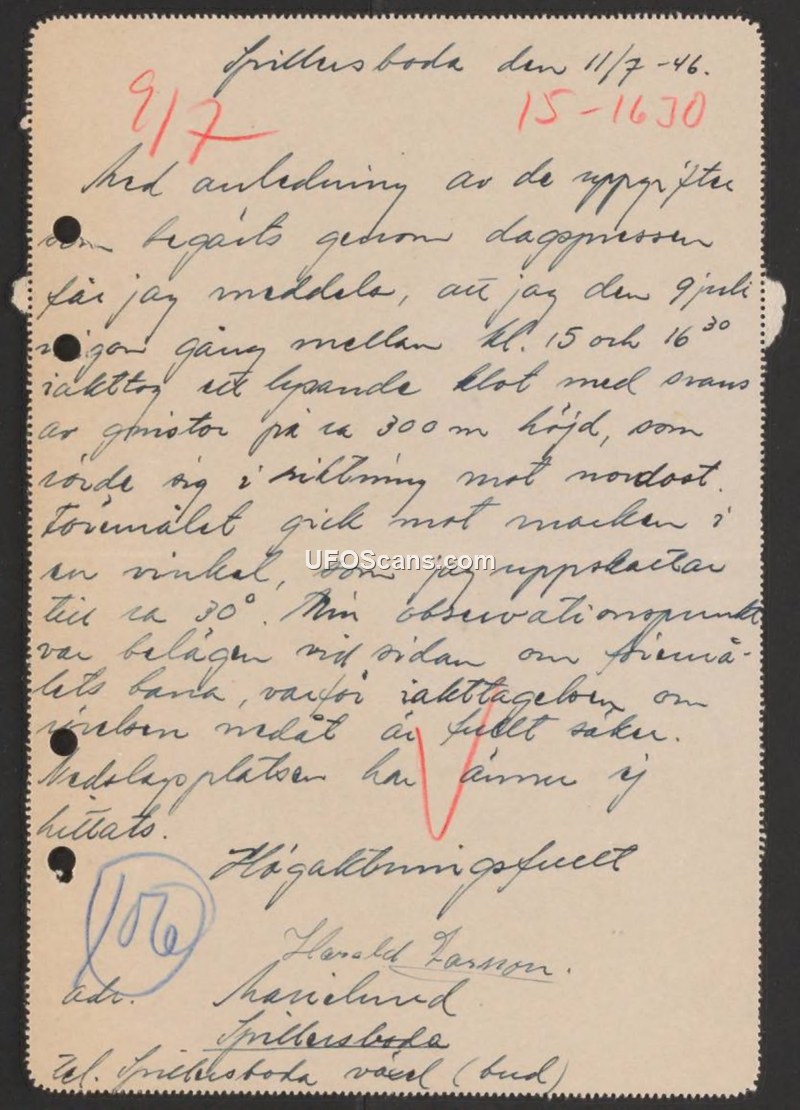 Spillersboda den 11/7 -46.
9/7 15-1630
Med anledning av de uppgifter
som begärts genom dagspressen
får jag meddela, att jag den 9 juli
någon gång mellan kl. 15 och 16 30
iakttog ett lysande klot med svans
av gnistor på ca 300 m höjd, som
rörde sig i riktning mot nordost.
Föremålet gick mot marken i
en vinkel, som jag uppskattar
till ca 30°. Min observationspunkt
var belägen vid sidan om föremå-
lets bana, varför iakttagelsen om
rörelsen nedåt är fullt säker.
Nedslagsplatsen har ännu ej
hittats.
Högaktningsfullt
106
Harald
adr. Marielund
Spillersboda
tel. Spillersboda växel (bud)
UFOScans.com